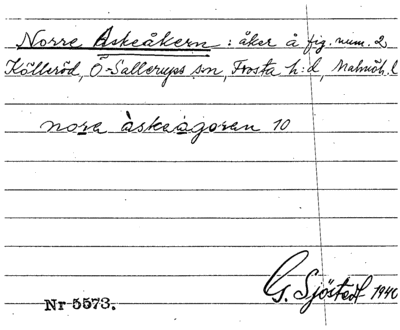 Norre Askeåkern : åker å fig. num. 2
Källeröd, Ö-Sallerups sn, Frosta h:d, Malmöh. l
nora àskeågoran 10
G. Sjöstedt 1940
Nr 5573.